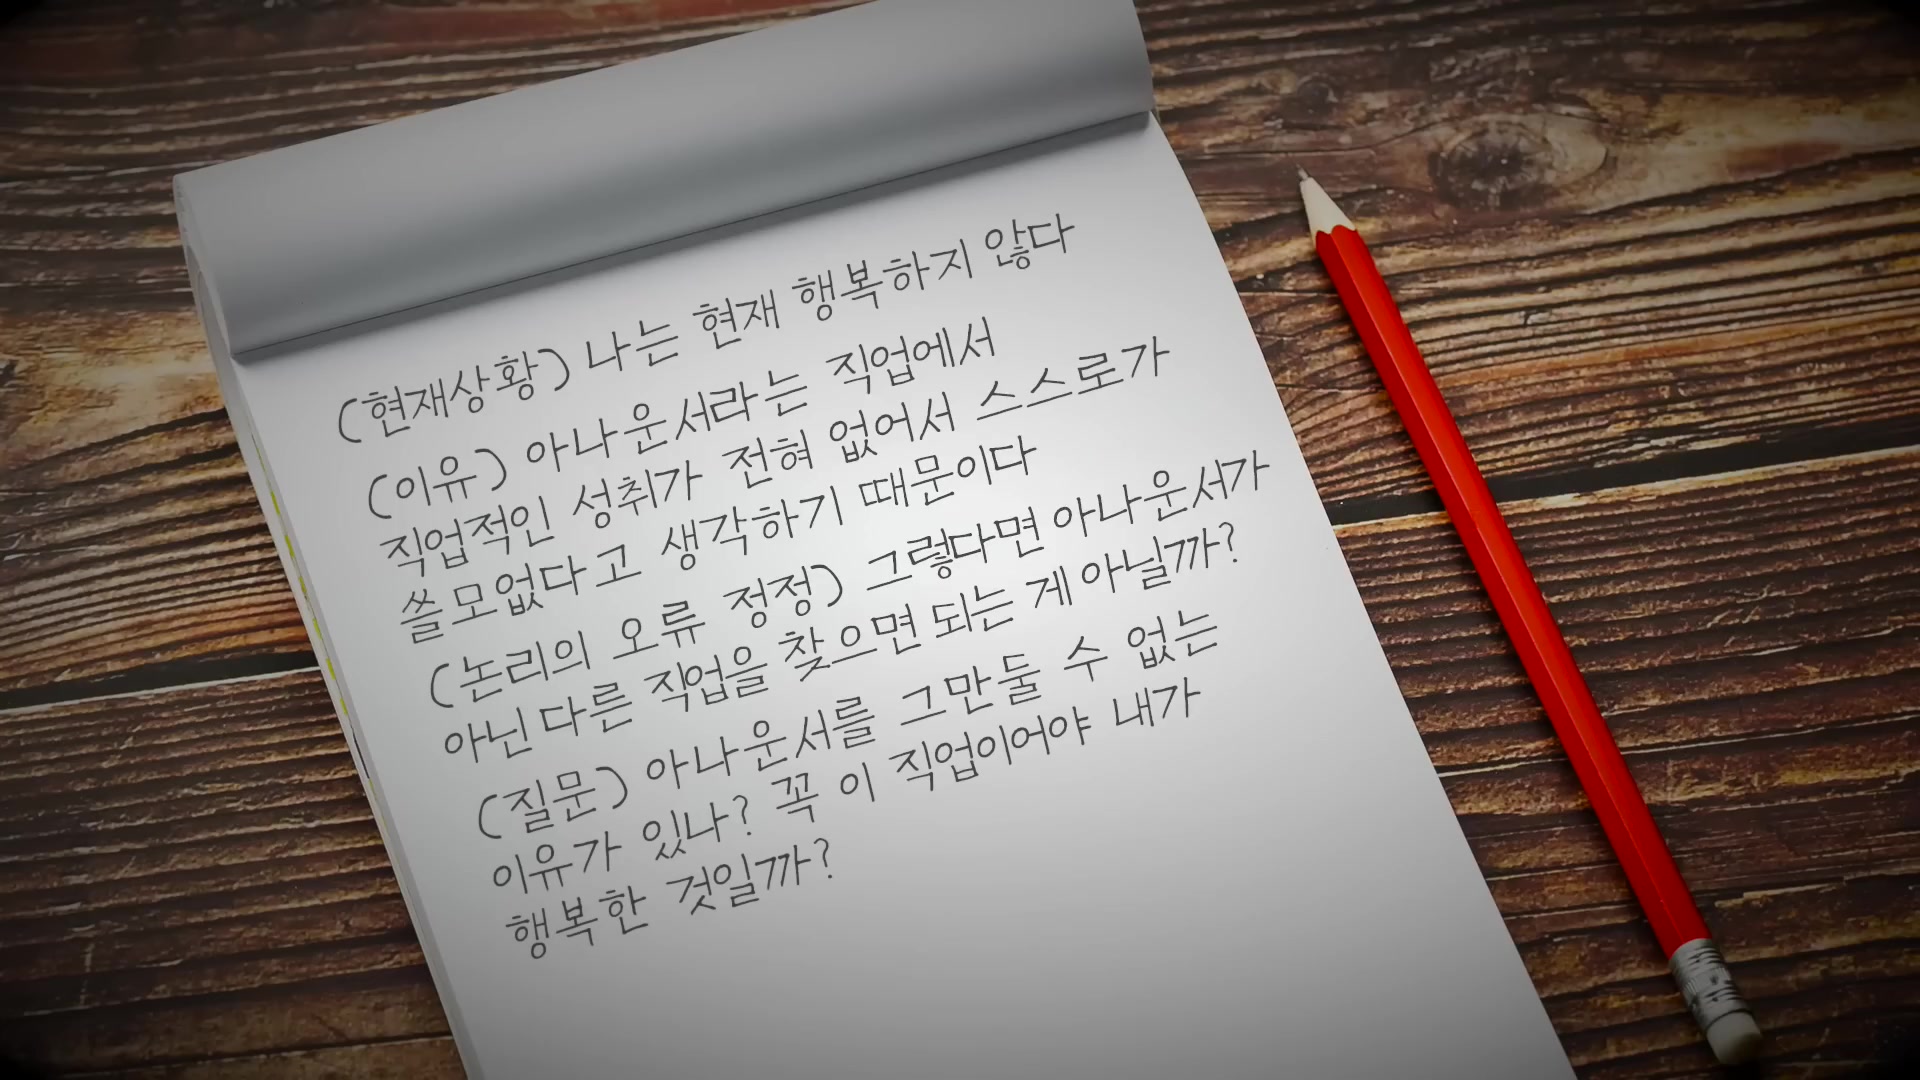 (현재상황) 나는 현재 행복하지 않다
(이유) 아나운서라는 직업에서
직업적인 성취가 전혀 없어서 스스로가
쓸모없다고 생각하기 때문이다
(논리의 오류 정정) 그렇다면 아나운서가
아닌 다른 직업을 찾으면 되는 게 아닐까?
(질문) 아나운서를 그만둘 수 없는
이유가 있나? 꼭 이 직업이어야 내가
행복한 것일까?